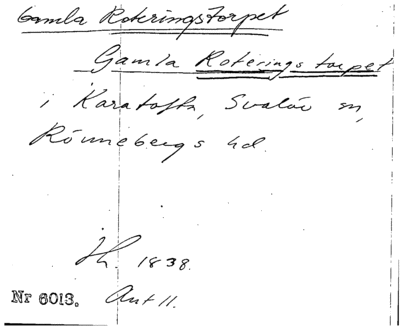 Gamla Roteringstorpet
Gamla Roterings torpet
i Karatofta, Svalöv sn,
Rönnebergs hd.
Jh. 1838.
Nr 6013. Ant 11.